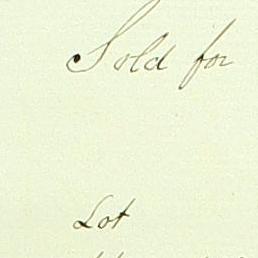 Sold for
Lot